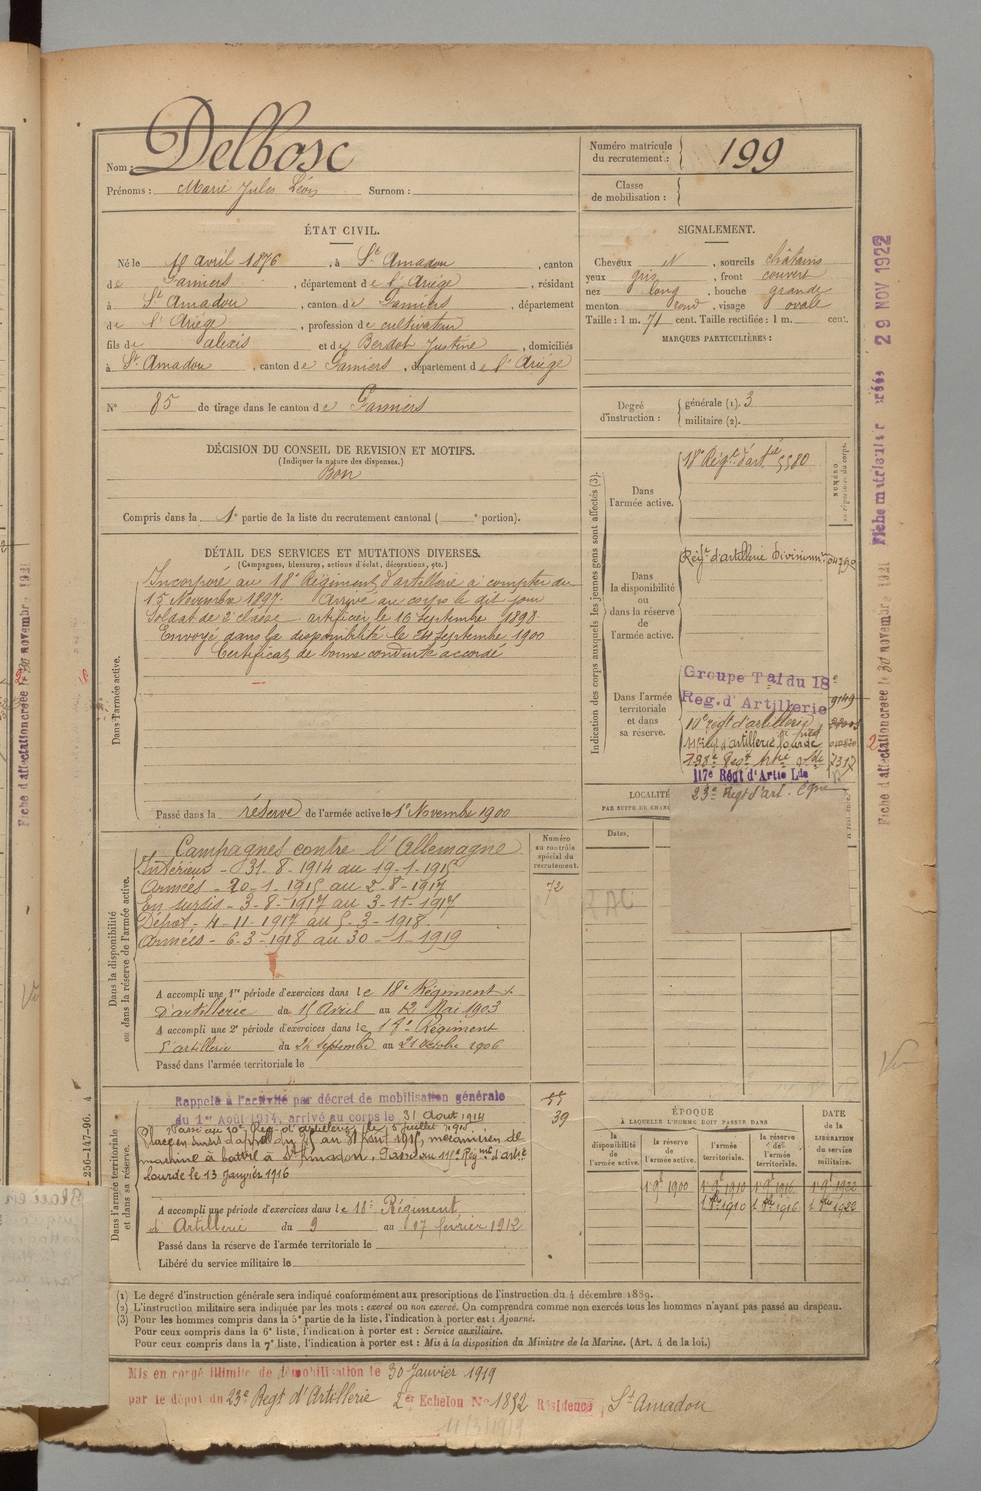 Nom : Delbosc
Prénoms : Marie Jules Léon Surnom :
Numéro matricule du recrutement : 199
Classe de mobilisation :
ÉTAT CIVIL.
Né le 10 avril 1876, à St Amadou, canton
de Pamiers, département de l'Ariège, résidant
à St Amadou, canton de Pamiers, département
de l'Ariège, profession de cultivateur
fils de alexis et de Berdot Justine, domiciliés
à St Amadou, canton de Pamiers, département de l'Ariège
N° 85 de tirage dans le canton de Pamiers
SIGNALEMENT.
Cheveux N, sourcils châtains
yeux gris, front couvert
nez long, bouche grande
menton rond, visage ovale
Taille : 1 m. 71 cent. Taille rectifiée : 1 m. cent.
MARQUES PARTICULIÈRES :
Degré d'instruction : générale (1). 3
militaire (2).
DÉCISION DU CONSEIL DE REVISION ET MOTIFS.
(Indiquer la nature des dispenses.)
Bon
Compris dans la 1e partie de la liste du recrutement cantonal ( e portion).
DÉTAIL DES SERVICES ET MUTATIONS DIVERSES.
(Campagnes, blessures, actions d'éclat, décorations, etc.)
Dans l'armée active.
Incorporé au 18e Régiment d'artillerie à compter du
15 Novembre 1897. Arrivé au corps le dit jour
Soldat de 2e classe. artificier le 16 Septembre 1898.
Envoyé dans la disponibilité le 24 Septembre 1900
Certificat de bonne conduite accordé
Passé dans la réserve de l'armée active le 1er Novembre 1900
Indication des corps auxquels les jeunes gens sont affectés (3).
NUMÉRO
Dans l'armée active.
18e Régt d'artie 5580
Dans la disponibilité ou dans la réserve de l'armée active.
Régt d'artillerie Divisionn.
Dans l'armée territoriale et dans sa réserve.
Groupe Tal du 18e
Reg. d'Artillerie 9149
117e Régt d'Artie Lde
23e Regt d'art. Cgne
LOCALITÉ
PAR SUITE DE CHANG
Dates.
Dans la disponibilité ou dans la réserve de l'armée active.
Numéro au contrôle spécial du recrutement.
72
Campagnes contre l'Allemagne
Intérieur - 31-8-1914 au 19-1-1915
Armées - 20-1-1915 au 2-8-1917
En sursis - 3-8-1917 au 3-11-1917
Dépôt - 4-11-1917 au 5-3-1918.
Armées - 6-3-1918 au 30-1-1919
A accompli une 1re période d'exercices dans le 18e Régiment
D'artillerie du 15 Avril au 12 Mai 1903
A accompli une 2e période d'exercices dans le 18e Régiment
d'artillerie du 24 Septembre au 21 Octobre 1906
Passé dans l'armée territoriale le
Dans l'armée territoriale et dans sa réserve.
Rappelé à l'activité par décret de mobilisation générale
du 1er Août 1914, arrivé au corps le 31 Août 1914
39
machine à battre à St Amadou. Passé au 117e Régmt d'artie
Lourde le 13 Janvier 1916
A accompli une période d'exercices dans le 18e Régiment
d'Artillerie du 9 au 17 février 1912
Passé dans la réserve de l'armée territoriale le
Libéré du service militaire le
ÉPOQUE
À LAQUELLE L'HOMME DOIT PASSER DANS
DATE DE LA LIBÉRATION DU SERVICE MILITAIRE.
la disponibilité de l'armée active.
la réserve de l'armée active.
l'armée territoriale.
la réserve de l'armée territoriale.
(1) Le degré d'instruction générale sera indiqué conformément aux prescriptions de l'instruction du 4 décembre 1889.
(2) L'instruction militaire sera indiquée par les mots : exercé ou non exercé. On comprendra comme non exercés tous les hommes n'ayant pas passé au drapeau.
(3) Pour les hommes compris dans la 5e partie de la liste, l'indication à porter est : Ajourné.
Pour ceux compris dans la 6e liste, l'indication à porter est : Service auxiliaire.
Pour ceux compris dans la 7e liste, l'indication à porter est : Mis à la disposition du Ministre de la Marine. (Art. 4 de la loi.)
Mis en congé illimité de démobilisation le 30 Janvier 1919
par le dépôt du 23e Regt d'Artillerie 2er Echelon No 1892 Résidence, St Amadou
256-147-96. 4
Fiche matricule 29 NOV 1922
Fiche d'affectation créée le 30 novembre 1931